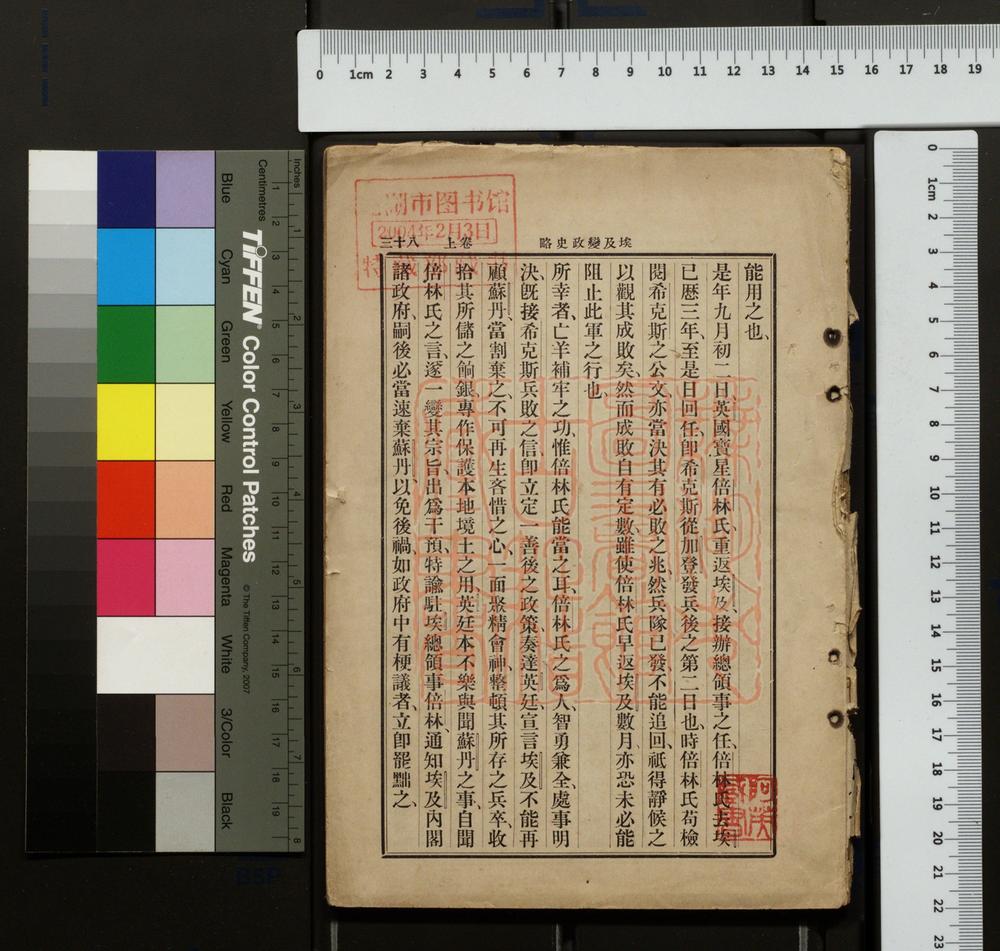 埃及變政史略
卷上
三十八
能用之也、
是年九月初二日英國寶星倍林氏重返埃及、接辦總領事之任、倍林氏去埃
已歷三年、至是日回任、卽希克斯從加登發兵後之第二日也、時倍林氏苟檢
閱希克斯之公文、亦當決其有必敗之兆、然兵隊已發不能追回、祇得靜候之
以觀其成敗矣、然而成敗自有定數、雖使倍林氏早返埃及數月、亦恐未必能
阻止此軍之行也、
所幸者、亡羊補牢之功、惟倍林氏能當之耳、倍林氏之爲人、智勇兼全、處事明
決、旣接希克斯兵敗之信、卽立定一善後之政策、奏達英廷、宣言埃及不能再
顧蘇丹、當割棄之、不可再生吝惜之心、一面聚精會神、整頓其所存之兵卒、收
拾其所儲之餉銀、專作保護本地境土之用、英廷本不樂與聞蘇丹之事、自聞
倍林氏之言、遂一變其宗旨、出爲干預、特諭駐埃總領事倍林、通知埃及內閣
諸政府、嗣後必當速棄蘇丹、以免後禍、如政府中有梗議者、立卽罷黜之、
湖市图书馆
2004年2月3日
0 1cm 2 3 4 5 6 7 8 9 10 11 12 13 14 15 16 17 18 19
0 1cm 2 3 4 5 6 7 8 9 10 11 12 13 14 15 16 17 18 19 20 21 22 23
Inches 1 2 3 4 5 6 7 8
Centimetres 1 2 3 4 5 6 7 8 9 10 11 12 13 14 15 16 17 18 19
TIFFEN® Color Control Patches
© The Tiffen Company, 2007
Blue
Cyan
Green
Yellow
Red
Magenta
White
3/Color
Black